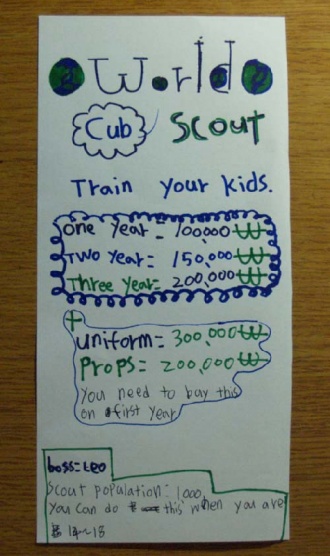 World
Cub Scout
Train your kids.
one Year = 100,000 ₩
Two Year = 150,000 ₩
Three Year = 200,000 ₩
+
uniform = 300,000 ₩
Props = 200,000 ₩
you need to buy this
on first year
boss = Leo
Scout population = 1000
you can do this when you are
14~18